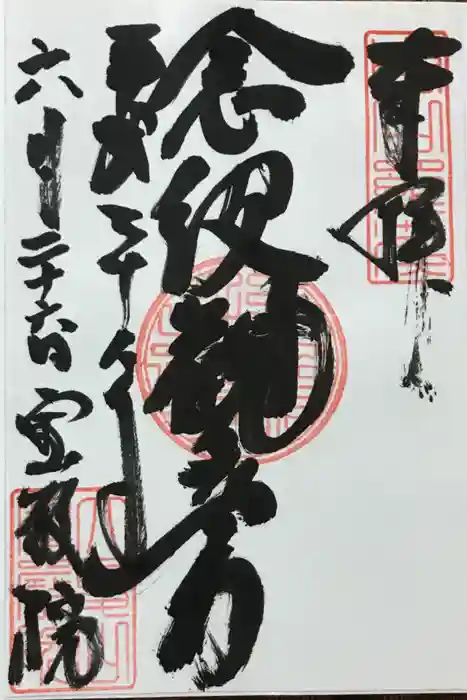 奉拝
念彼観音力
平成三十年
六月二十六日 宝厳院